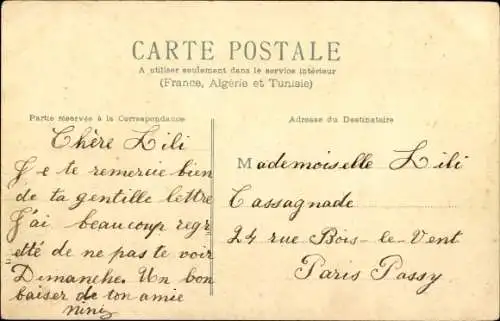 CARTE POSTALE
A utiliser seulement dans le service intérieur
(France, Algérie et Tunisie)
Partie réservée à la Correspondance
Adresse du Destinataire
Chère Lili
Je te remercie bien
de ta gentille lettre
J'ai beaucoup regr
etté de ne pas te voir
Dimanche. Un bon
baiser de ton amie
Nini
Mademoiselle Lili
Cassagnade
24 rue Bois-le-Vent
Paris Passy